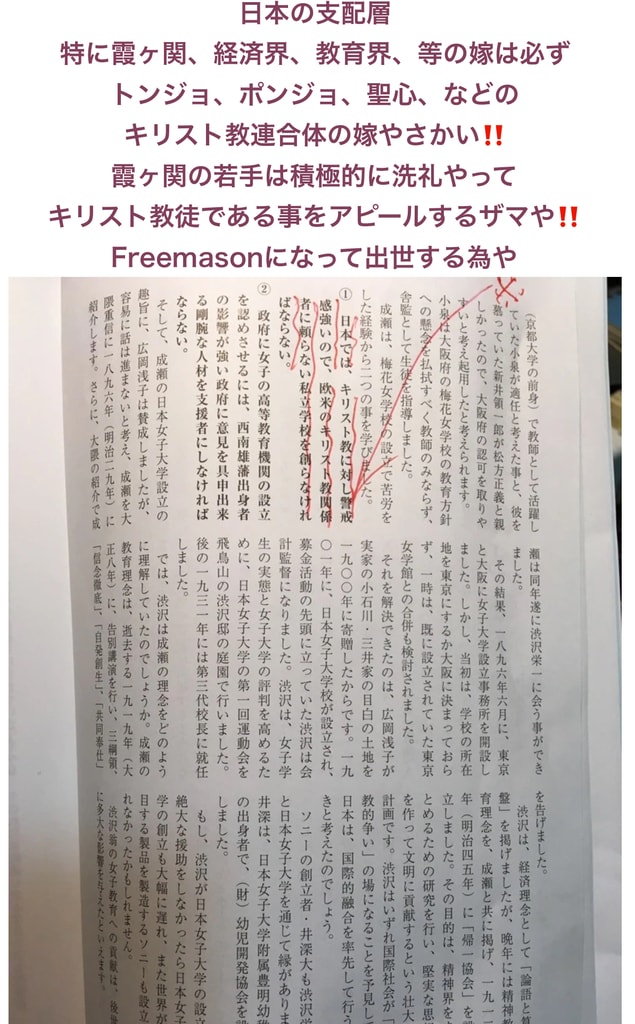 日本の支配層
特に霞ヶ関、経済界、教育界、等の嫁は必ず
トンジョ、ポンジョ、聖心、などの
キリスト教連合体の嫁やさかい‼️
霞ヶ関の若手は積極的に洗礼やって
キリスト教徒である事をアピールするザマや‼️
Freemasonになって出世する為や
(京都大学の前身)で教師として活躍し
ていた小泉が適任と考えた事と、彼を
慕っていた新井領一郎が松方正義と親
しかったので、大阪府の認可を取りや
すいと考え起用したと考えられます。
小泉は大阪府の梅花女学校の教育方針
への懸念を払拭すべく教師のみならず、
舎監として生徒を指導しました。
成瀬は、梅花女学校の設立で苦労を
した経験から二つの事を学びました。
① 日本では、キリスト教に対し警戒
感強いので、欧米のキリスト教関係
者に頼らない私立学校を創らなけれ
ばならない。
② 政府に女子の高等教育機関の設立
を認めさせるには、西南雄藩出身者
の影響が強い政府に意見を具申出来
る剛腕な人材を支援者にしなければ
ならない。
そして、成瀬の日本女子大学設立の
趣旨に、広岡浅子は賛成しましたが、
容易に話は進まないと考え、成瀬を大
隈重信に一八九六年(明治二九年)に
紹介します。さらに、大隈の紹介で成
瀬は同年遂に渋沢栄一に会う事ができ
ました。
その結果、一八九六年六月に、東京
と大阪に女子大学設立事務所を開設し
ました。しかし、当初は、学校の所在
地を東京にするか大阪に決まっておら
ず、一時は、既に設立されていた東京
女学館との合併も検討されました。
それを解決できたのは、広岡浅子が
実家の小石川・三井家の目白の土地を
一九〇〇年に寄贈したからです。一九
〇一年に、日本女子大学校が設立され、
募金活動の先頭に立っていた渋沢は会
計監督になりました。渋沢は、女子学
生の実態と女子大学の評判を高めるた
めに、日本女子大学の第一回運動会を
飛鳥山の渋沢邸の庭園で行いました。
後の一九三一年には第三代校長に就任
しました。
では、渋沢は成瀬の理念をどのよう
に理解していたのでしょうか。成瀬の
教育理念は、逝去する一九一九年(大
正八年)に、告別講演を行い、三綱領、
「信念徹底」、「自発創生」、「共同奉仕」
を告げました。
渋沢は、経済理念として「論語と算
盤」を掲げましたが、晩年には精神教
育理念を、成瀬と共に掲げ、一九一
年(明治四五年)に「帰一協会」を設
立しました。その目的は、精神界を
とめるための研究を行い、堅実な思
を作って文明に貢献するという壮大
計画です。渋沢はいずれ国際社会が「
教的争い」の場になることを予見し
日本は、国際的融合を率先して行う
きと考えたのでしょう。
ソニーの創立者・井深大も渋沢栄
と日本女子大学を通じて縁がありま
井深は、日本女子大学附属豊明幼稚
の出身者で、(財)幼児開発協会を設
しました。
もし、渋沢が日本女子大学の設立
絶大な援助をしなかったら日本女子
学の創立も大幅に遅れ、また世界が
目する製品を製造するソニーも設立
れなかったかもしれません。
渋沢翁の女子教育への貢献は、後世
に多大な影響を与えたといえます。